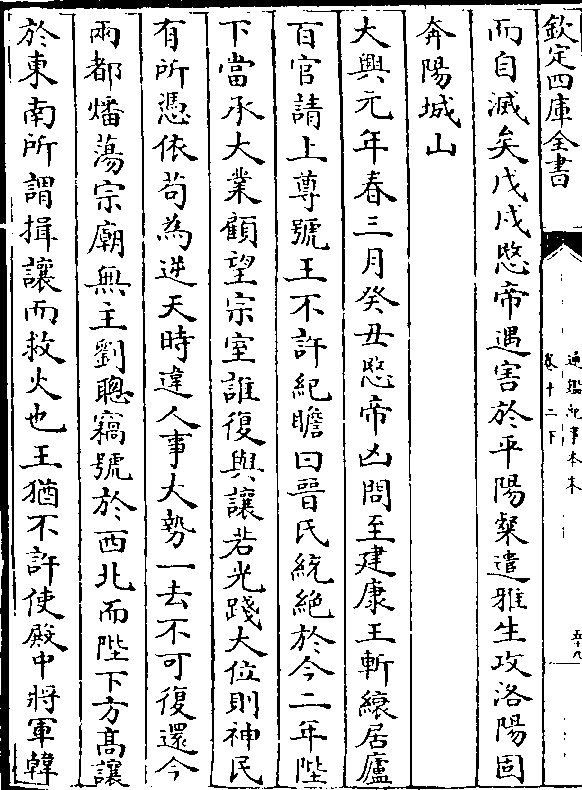 欽定四庫全書
通鑑紀事本末
卷十二下
五十九
而自滅矣戊戌愍帝遇害於平陽粲遣雅生攻洛陽固
奔陽城山
大興元年春三月癸丑愍帝凶問至建康王斬縗居廬
百官請上尊號王不許紀瞻曰晉氏統絕於今二年陛
下當承大業顧望宗室誰復與讓若光踐大位則神民
有所憑依苟為逆天時違人事大勢一去不可復還今
兩都燔蕩宗廟無主劉聰竊號於西北而陛下方髙讓
於東南所謂揖讓而救火也王猶不許使殿中將軍韓